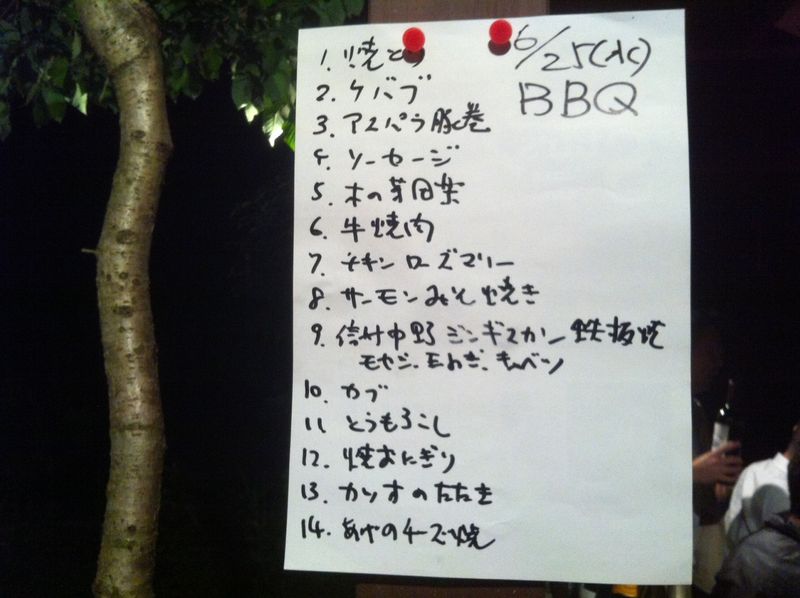 6/25(水)
BBQ
1. 焼とり
2. ケバブ
3. アスパラ豚巻
4. ソーセージ
5. 木の芽田楽
6. 牛焼肉
7. チキンローズマリー
8. サーモンみそ焼き
9. 信州中野ジンギスカン鉄板焼
モヤシ、玉ねぎ、キャベツ
10. カブ
11. とうもろこし
12. 焼おにぎり
13. カツオのたたき
14. あげのチーズ焼